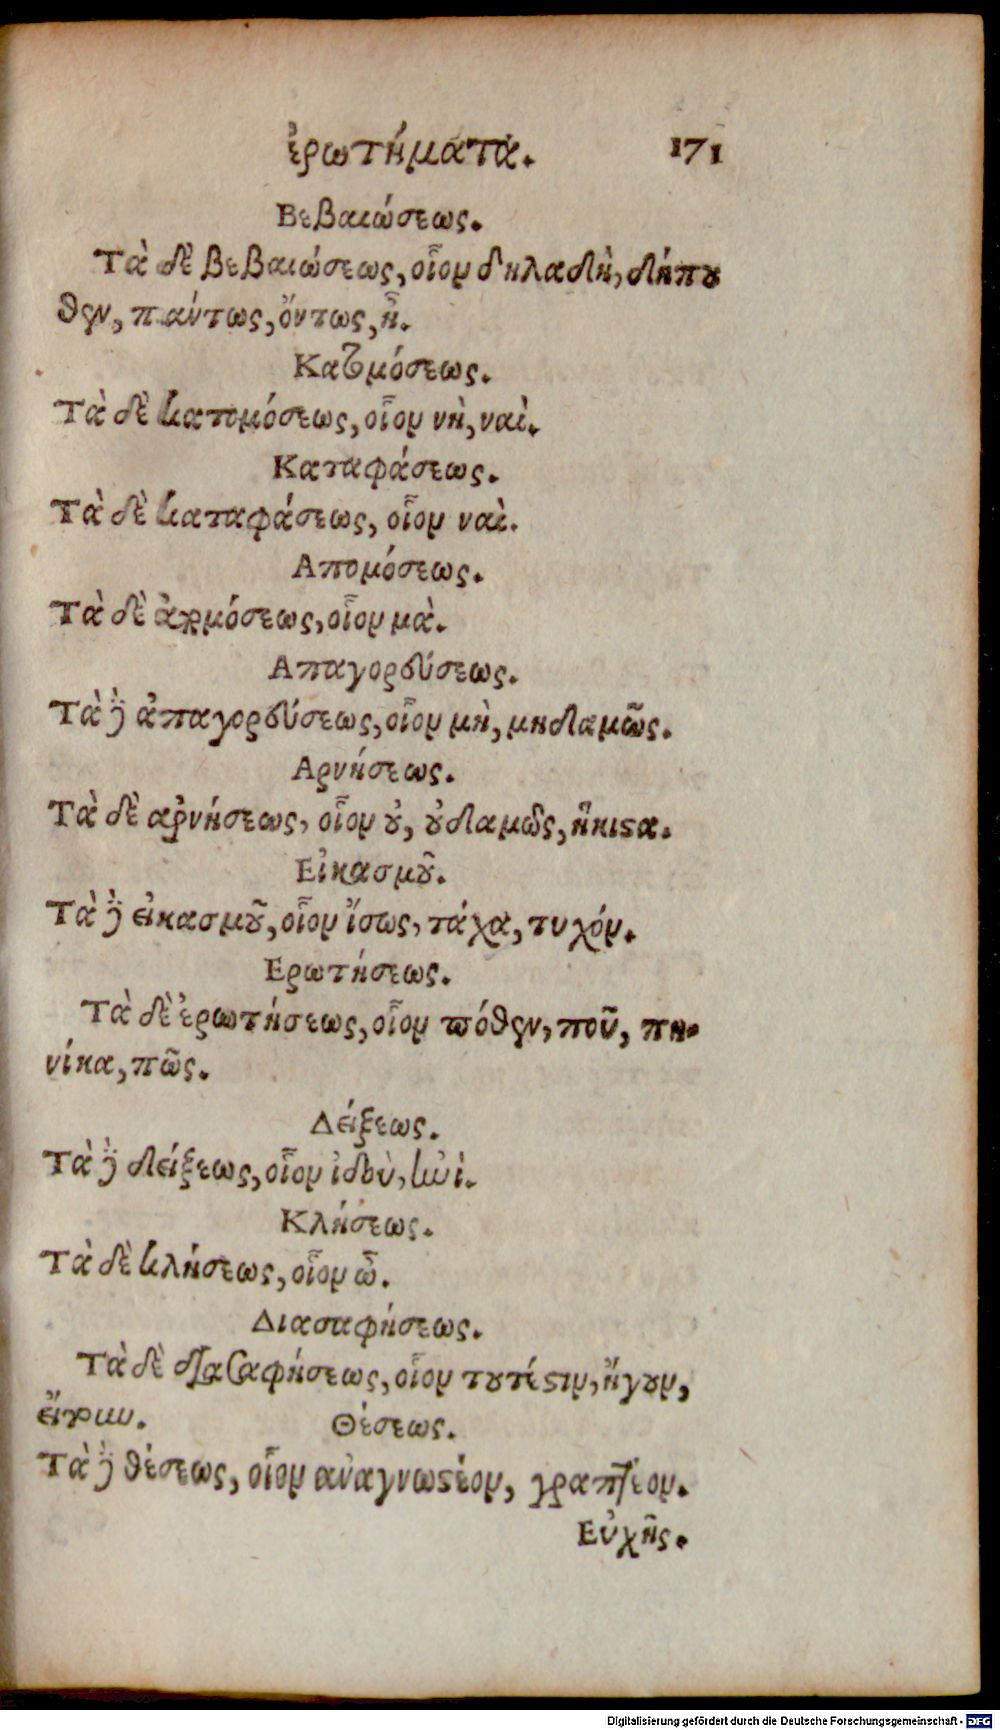 ἐρωτήματα. 171
Βεβαιώσεως.
Τὰ δὲ βεβαιώσεως, οἷον δηλαδὴ, δήπου
θεν, πάντως, ὄντως, ἦ.
Κατομόσεως.
Τὰ δὲ κατομόσεως, οἷον νὴ, ναὶ.
Καταφάσεως.
Τὰ δὲ καταφάσεως, οἷον ναὶ.
Απομόσεως.
Τὰ δὲ ἀπομόσεως, οἷον μὰ.
Απαγορεύσεως.
Τὰ δὲ ἀπαγορεύσεως, οἷον μὴ, μηδαμῶς.
Αρνήσεως.
Τὰ δὲ ἀρνήσεως, οἷον οὐ, οὐδαμῶς, ἥκιστα.
Εἰκασμοῦ.
Τὰ δὲ εἰκασμοῦ, οἷον ἴσως, τάχα, τυχόν.
Ερωτήσεως.
Τὰ δὲ ἐρωτήσεως, οἷον πόθεν, ποῦ, πη-
νίκα, πῶς.
Δείξεως.
Τὰ δὲ δείξεως, οἷον ἰδοὺ, ἠνὶ.
Κλήσεως.
Τὰ δὲ κλήσεως, οἷον ὦ.
Διασαφήσεως.
Τὰ δὲ διασαφήσεως, οἷον τουτέστιν, ἤγουν,
εἴτουν. Θέσεως.
Τὰ δὲ θέσεως, οἷον ἀναγνωστέον, γραπτέον.
Εὐχῆς.
Digitalisierung gefördert durch die Deutsche Forschungsgemeinschaft - DFG